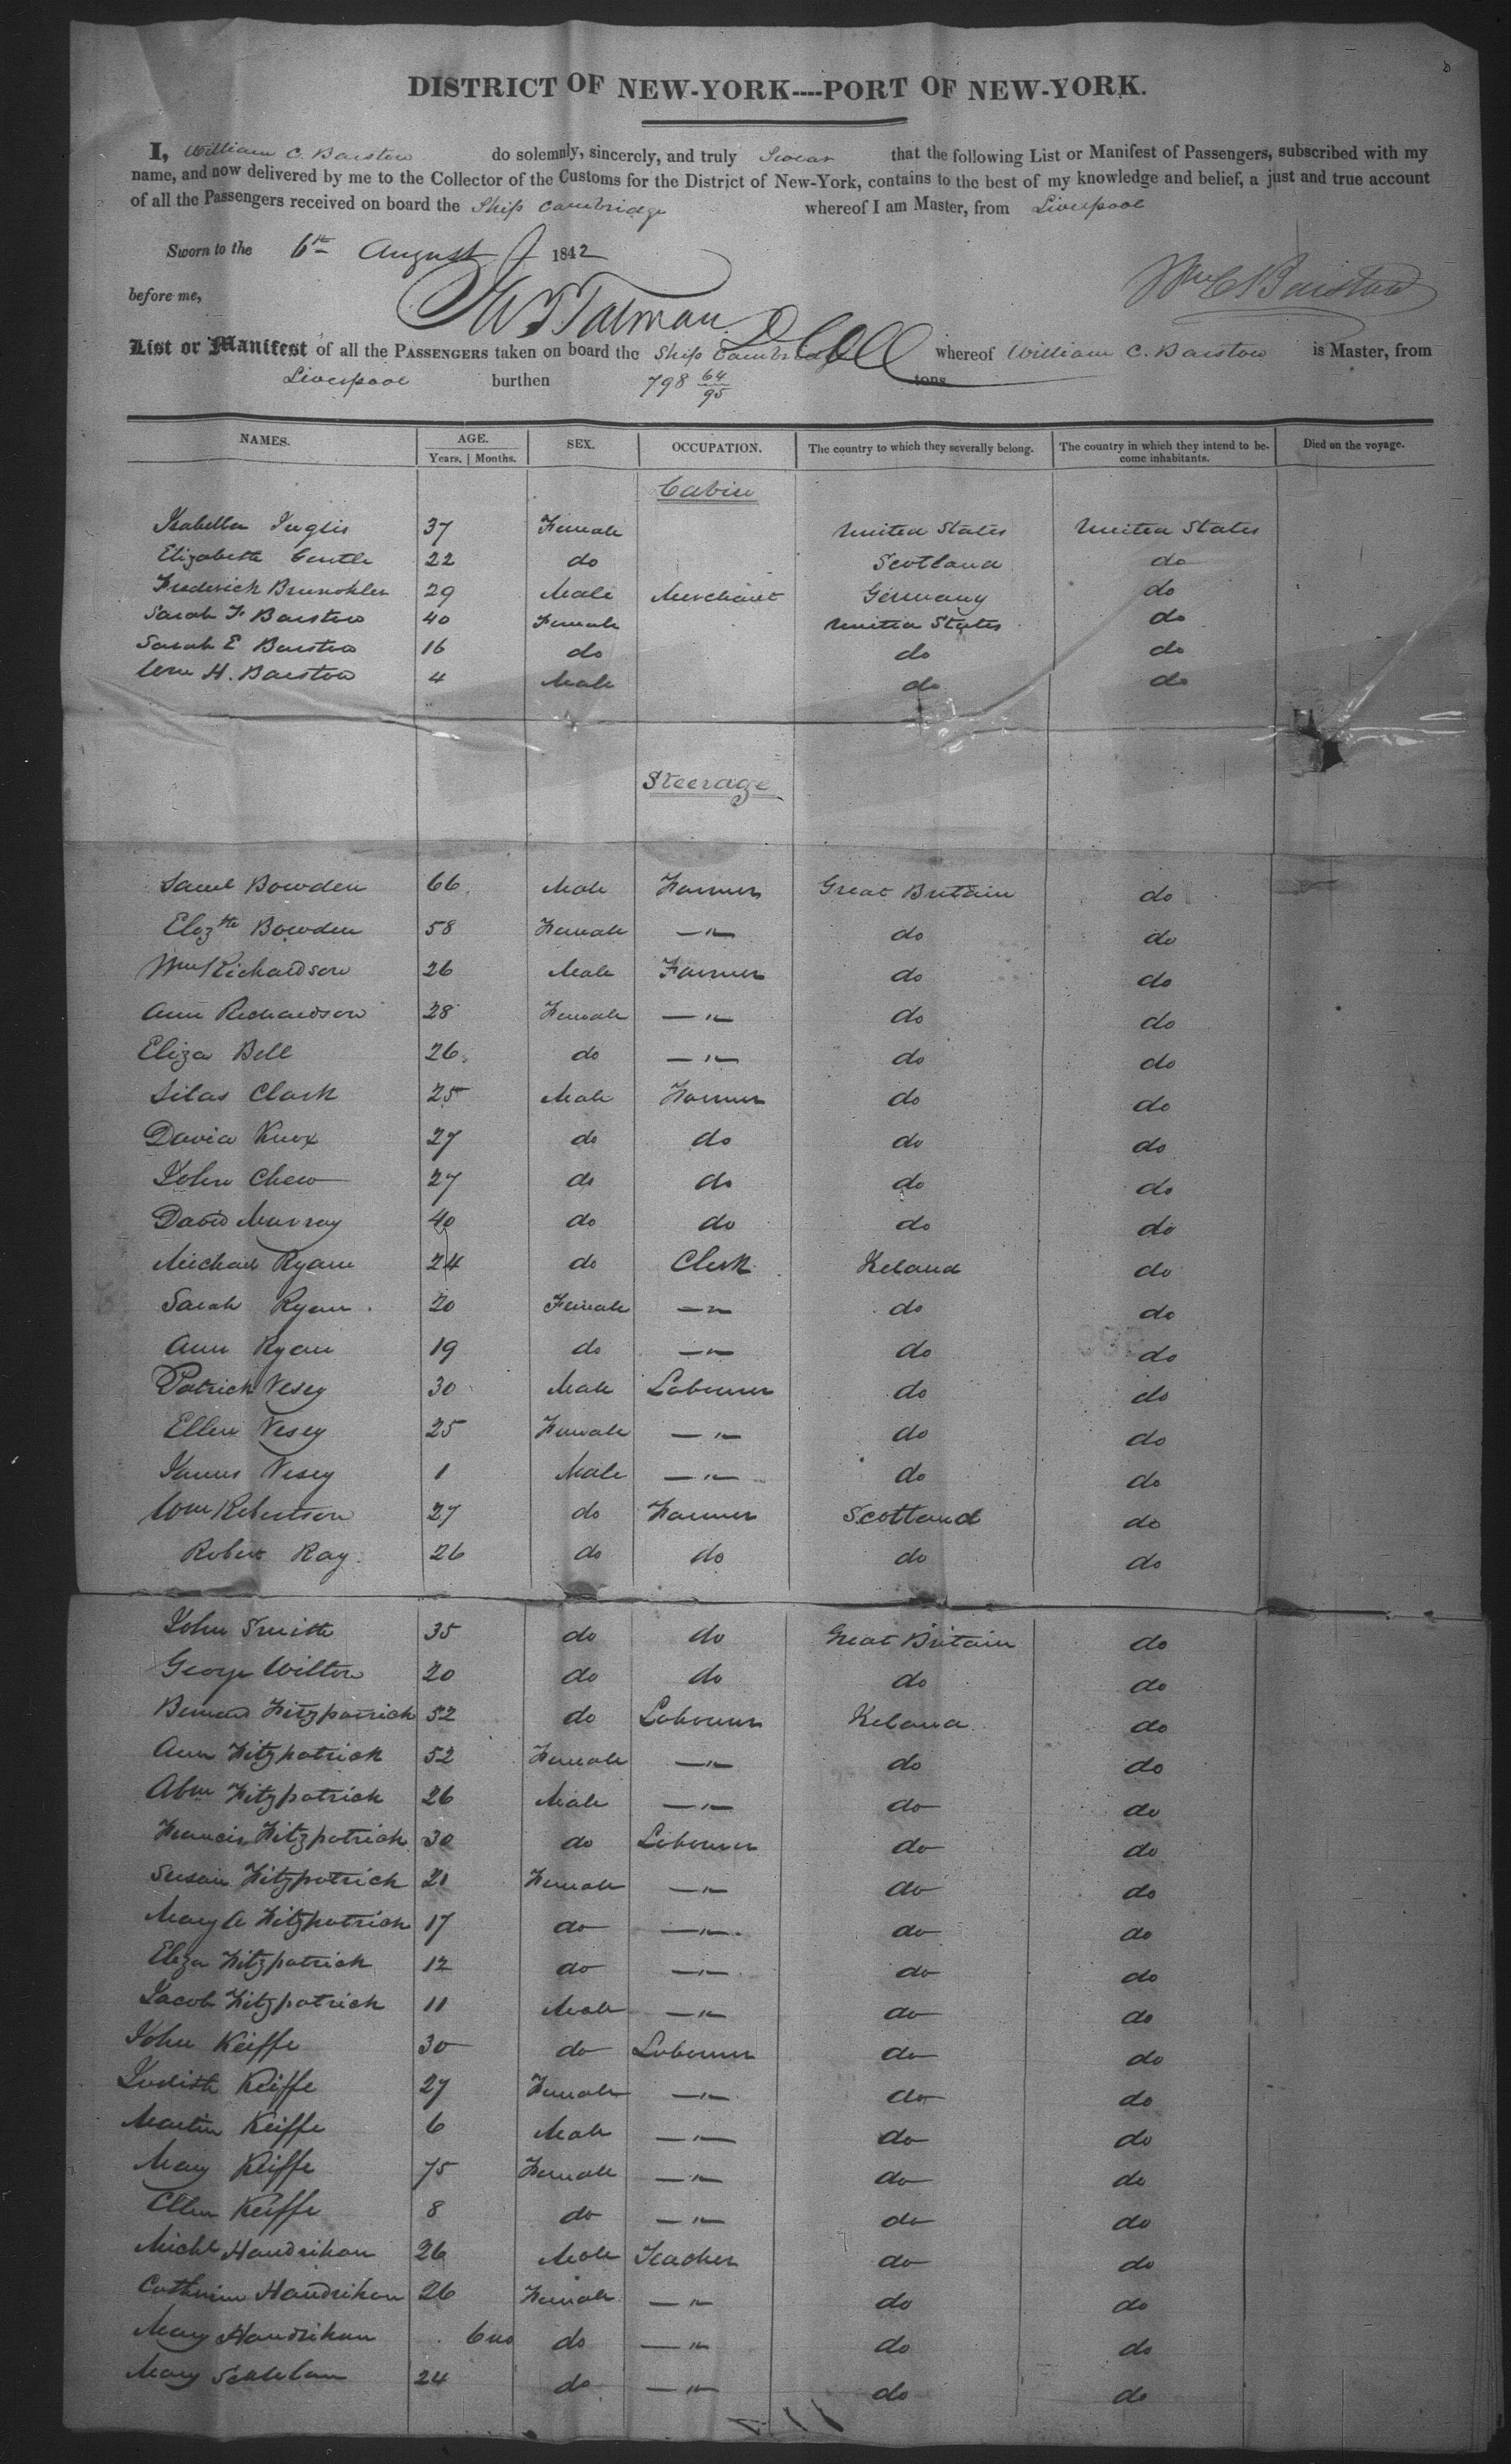 DISTRICT OF NEW-YORK----PORT OF NEW-YORK.
I, William C. Barstow do solemnly, sincerely, and truly Swear that the following List or Manifest of Passengers, subscribed with my
name, and now delivered by me to the Collector of the Customs for the District of New-York, contains to the best of my knowledge and belief, a just and true account
of all the Passengers received on board the Ship Cambridge whereof I am Master, from Liverpool
Sworn to the 6th August 1842
Wm C Barstow
before me,
Talman
List or Manifest of all the PASSENGERS taken on board the Ship Cambridge whereof William C. Barstow is Master, from
Liverpool burthen 798 64/95 tons
NAMES. AGE. SEX. OCCUPATION. The country to which they severally belong. The country in which they intend to be- Died on the voyage.
Years. | Months. come inhabitants.
Cabin
Isabella Inglis 37 Female United States United States
Elizabeth Gentle 22 do Scotland do
Frederick 29 Male Merchant Germany do
Sarah F Barstow 40 Female United States do
Sarah E Barstow 16 do do do
Wm H. Barstow 4 Male do do
Steerage
Saml Bowden 66 Male Farmer Great Britain do
Elizth Bowden 58 Female — " — do do
Wm Richardson 26 Male Farmer do do
Ann Richardson 28 Female — " — do do
Eliza Bell 26 do — " — do do
Silas Clark 25 Male Farmer do do
David Knox 27 do do do do
John Chew 27 do do do do
David Murray 40 do do do do
Michael Ryan 24 do Clerk Ireland do
Sarah Ryan 20 Female — " — do do
Ann Ryan 19 do — " — do do
Patrick Vesey 30 Male Labourer do do
Ellen Vesey 25 Female — " — do do
James Vesey 1 Male — " — do do
Wm Robertson 27 do Farmer Scotland do
Robert Ray 26 do do do do
John Smith 35 do do Great Britain do
George Wilton 20 do do do do
Bernard Fitzpatrick 52 do Labourer Ireland do
Ann Fitzpatrick 52 Female — " — do do
Abm Fitzpatrick 26 Male — " — do do
Francis Fitzpatrick 30 do Labourer do do
Susan Fitzpatrick 21 Female — " — do do
Mary A Fitzpatrick 17 do — " — do do
Eliza Fitzpatrick 12 do — " — do do
Jacob Fitzpatrick 11 Male — " — do do
John Keiffe 30 do Labourer do do
Judith Keiffe 27 Female — " — do do
Martin Keiffe 6 Male — " — do do
Mary Keiffe 75 Female — " — do do
Ellen Keiffe 8 do — " — do do
Michl Handrihan 26 Male Teacher do do
Catherine Handrihan 26 Female — " — do do
Mary Handrihan 6 mo do — " — do do
Mary 24 do — " — do do